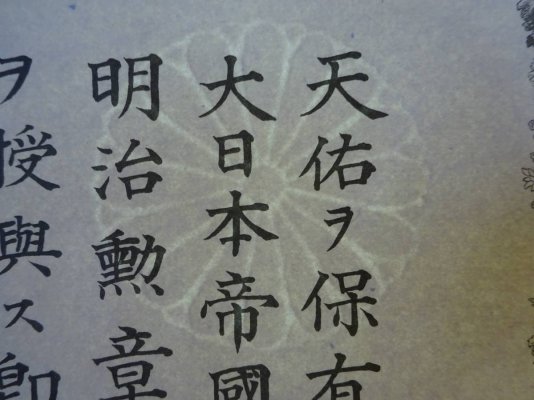 天佑ヲ保有
大日本帝國
明治勲章
ヲ授與ス卽